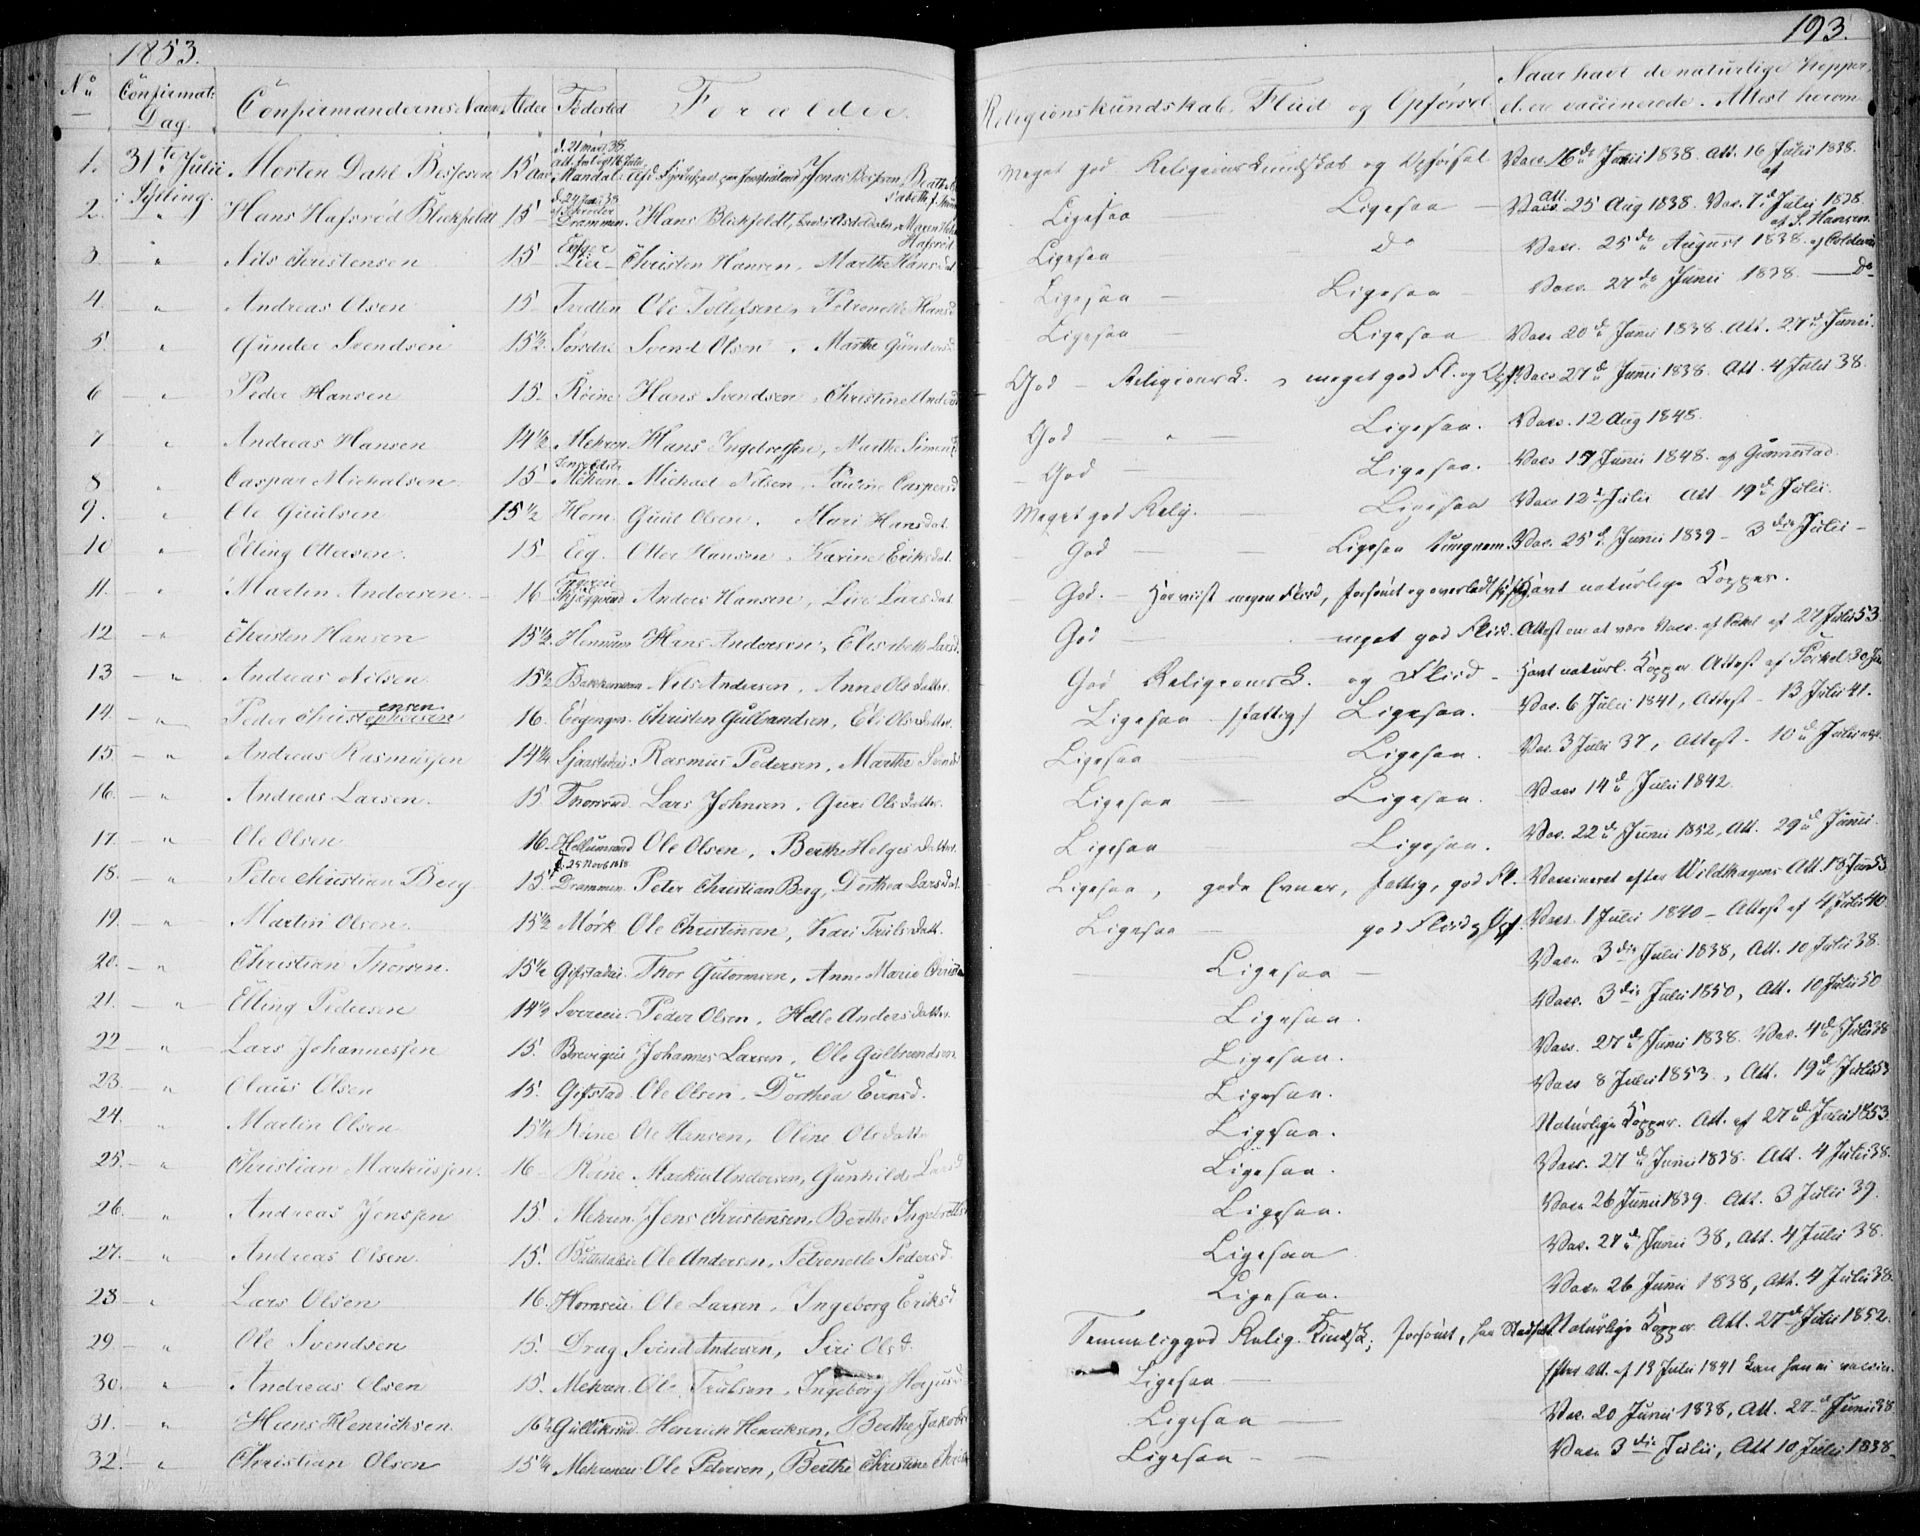 1853.
193.
No
Confirmat: Dag.
Confirmandernes Navn
Alder
Fødested
Forældre.
Religionskundskab, Fliid og Opførsel
Naar havt de naturlige Kopper, el. ere vaccinerede. Attest herom
1. 31te Julii Morten Dahl 15 Aar Mandal Meget god Religionskundskab og Opførsel Vacc. 16de Junii 1838. Att. 16 Julii 1838.
d. 21 mars 38
i Sylling.
2. " Hans Hafsrød Blichfeldt 15 Drammen. Hans Blichfeldt, Ligesaa Ligesaa Att. 25 Aug 1838. Vac. 7d Julii 1838.
af S. Hansen
Hafsrød
3 " Nils Christensen 15 Lier Christen Hansen, Marthe Hansdat. Ligesaa Do Vacc. 25de August 1838. af
4. " Andreas Olsen 15 Tredten Ole Tollefsen, Petronelle Hansd Ligesaa Ligesaa Vacc. 27de Junii 1838 Do
5. " Gunder Svendsen 15½ Sørsdal Svend Olsen, Marthe Gundersd Ligesaa Ligesaa Vacc 20de Junii 1838. Att. 27de Junii.
6 " Peder Hansen 15. Røine Hans Svendsen, Christine God Religions K. meget god Fl. og Opf. Vacc 27de Junii 1838. Att. 4 Julii 38.
7 " Andreas Hansen 14½ Mehren Hans Ingebretsen, Marthe Simensd God Ligesaa. Vacc. 12 Aug 1848.
8 " Caspar Michalsen 15 Mehren. Michael Nilsen, Pauline Caspersd God Ligesaa. Vacc 17 Junii 1848. af Gunnestad.
9. " Ole Guulsen 15½ Horn. Guul Olsen, Mari Hansdat. Meget god Relig. Ligesaa Vacc 12d Julii Att 19d Julii.
10 " Elling Ottersen. 15 Eeg. Otter Hansen, Karine Eriksdat. God Ligesaa Vac. 25d Junii 1839 - 3die Julii
11. " Martin Andersen. 16 Anders Hansen, Live Larsdat God. Har viist megen Fliid, Havt naturlige Kopper.
12 " Christen Hansen 15½ Hennum Hans Andersen, Elisabeth Larsd. God meget god Fliid. Attest om at være Vacc. af 27 Julii 53.
13 " Andreas Nilsen 15½ Nils Andersen, Anne Olsdatter. God Religions K. og Fliid Havt naturl. Kopper Attest af
14. " Peder Christophersen 16. Christen Gulbrandsen, Eli Olsdatter. Ligesaa (fattig) Ligesaa. Vac. 6 Julii 1841, Attest 13 Julii 41.
ensen
15. " Andreas Rasmussen 14½ Rasmus Pedersen, Marthe Ligesaa Ligesaa. Vac. 3 Julii 37, Attest 10d Julii
16. " Andreas Larsen. 15 Thorsrud Lars Johnsen, Guri Olsdatter. Ligesaa Ligesaa. Vacc 14d Julii 1842
17. " Ole Olsen 16. Hellumsrud Ole Olsen, Berthe Helgesdatter. Ligesaa Ligesaa. Vac. 22d Junii 1852, Att. 29d Junii.
18. " Peter Christian Berg 15. Drammen. Peter Christian Berg, Dorthea Larsdat. Ligesaa, gode Evner, fattig, god Fl. Vaccineret efter Wildhagens Att.
19. " Martin Olsen 15½ Mørk Ole Christensen, Kari Trulsdatt. Ligesaa god Fliid og Opf. Vacc. 1 Julii 1840 - Attest af 4 Julii 40
20. " Christian Thorsen. 15½ Gifstad Thor Guttormsen, Anne Marie Ligesaa Vacc. 3die Julii 1838, Att. 10 Julii 38.
21. " Elling Pedersen 14½ Peder Olsen, Helle Andersdatter. Ligesaa. Vacc. 3die Julii 1850, Att. 10 Julii 50
22 " Lars Johannessen 15. Johannes Larsen, Ole Gulbrandsen Ligesaa. Vacc. 27d Junii 1838. Vac. 4d Julii 38
23. " Olaus Olsen 15. Gifstad Ole Olsen, Dorthea Evensd. Ligesaa. Vacc 8 Julii 1853, Att. 19d Julii 53
24. " Martin Olsen Røine Ole Hansen, Oline Olsdatter Ligesaa. Naturlige Kopper. Att. af 27d Julii 1853.
25. " Christian Markussen. 16 Røine Markus Andersen, Gunhild Larsd Ligesaa. Vacc. 27d Junii 1838. Att. 4 Julii 38.
26. " Andreas Jenssen 15. Mehren Jens Christensen, Berthe Ligesaa. Vacc 26 Junii 1839. Att. 3 Julii 39.
27. " Andreas Olsen. 15. Ole Andersen, Petronelle Pedersd. Ligesaa Vac. 27d Junii 38, Att. 4 Julii 38.
28 " Lars Olsen 16. Ole Larsen, Ingeborg Eriksd Ligesaa. Vacc 26 Junii 1838, Att. 4 Julii 38.
29. " Ole Svendsen 15. Drag Svend Andersen, Siri Olsd. Temmelig god Relig. Kundsk. Naturlige Kopper Att. 27d Julii 1852.
30. " Andreas Olsen 15. Mehren Ole Trulsen, Ingeborg Ligesaa efter Att. af 13 Julii 1841 kan han ei vaccin.
31. " Hans Henrichsen. 16½ Gulliksrud Henrich Henriksen, Berthe Ligesaa Vac. 20 Junii 1838, Att. 27d Junii 38
32. " Christian Olsen 15½ Ole Petersen, Berthe Christine Ligesaa Vacc 3die Julii, Att 10 Julii 1838.